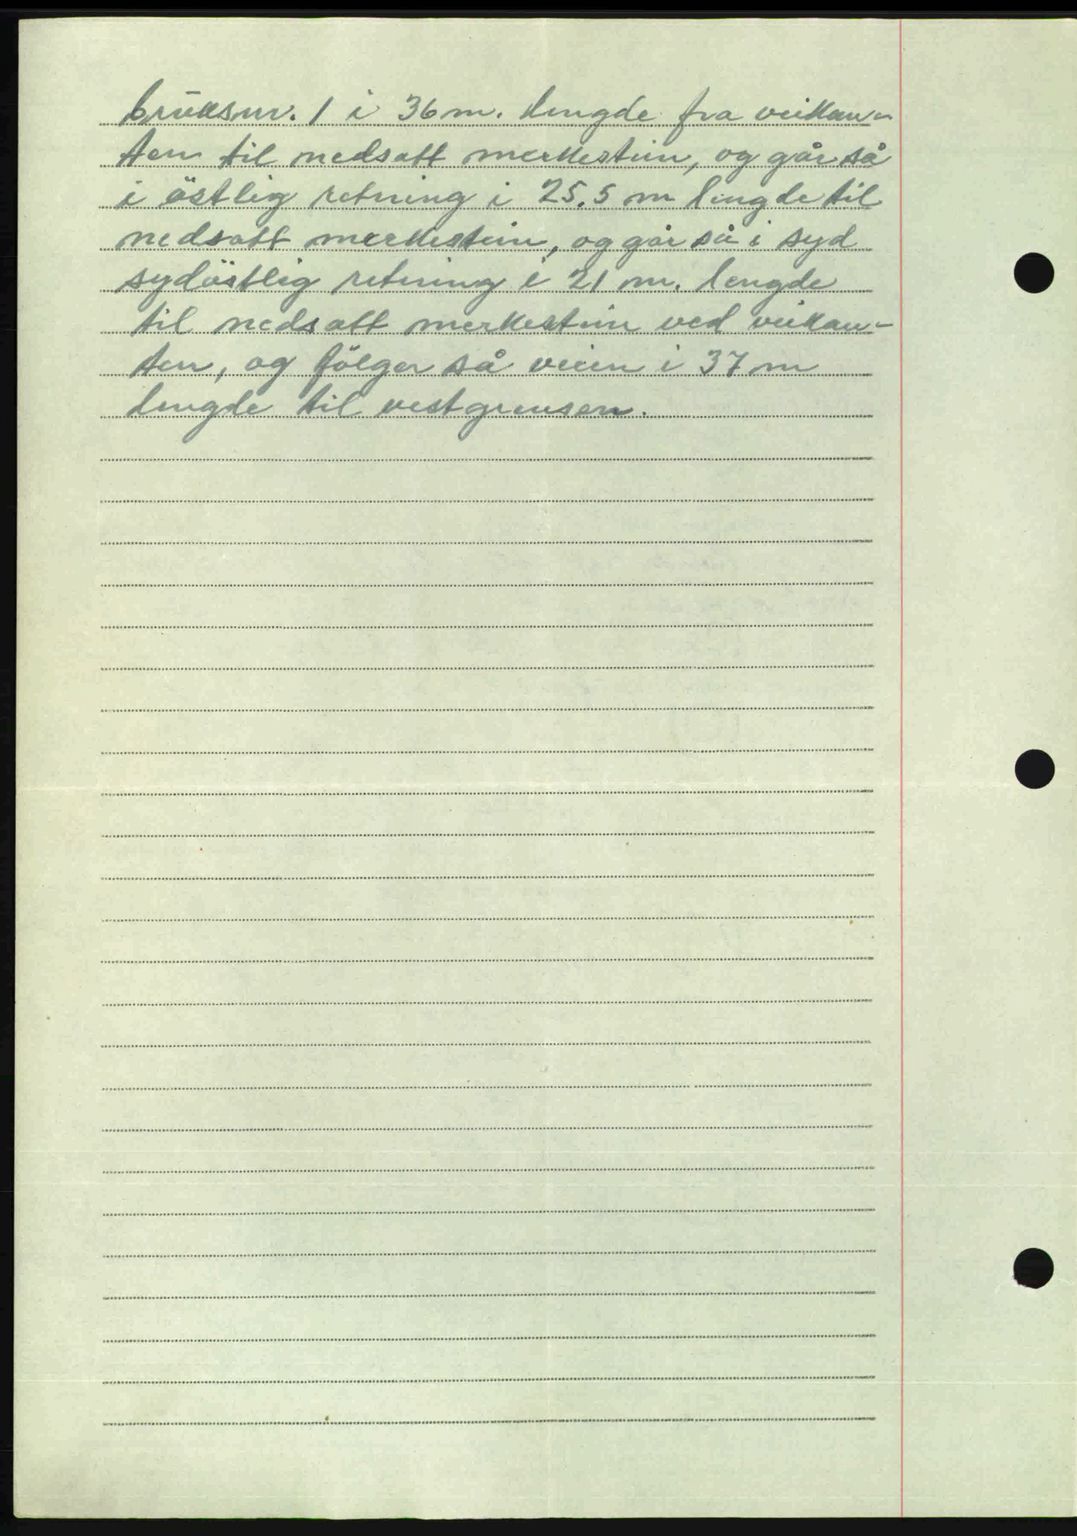 bruksnr. 1 i 36 m. lengde fra veikan-
ten til nedsatt merkestein, og går så
i östlig retning i 25.5 m lengde til
nedsatt merkestein, og går så i syd
sydöstlig retning i 21 m. lengde
til nedsatt merkestein ved veikan-
ten, og fölger så veien i 37 m
lengde til vestgrensen.